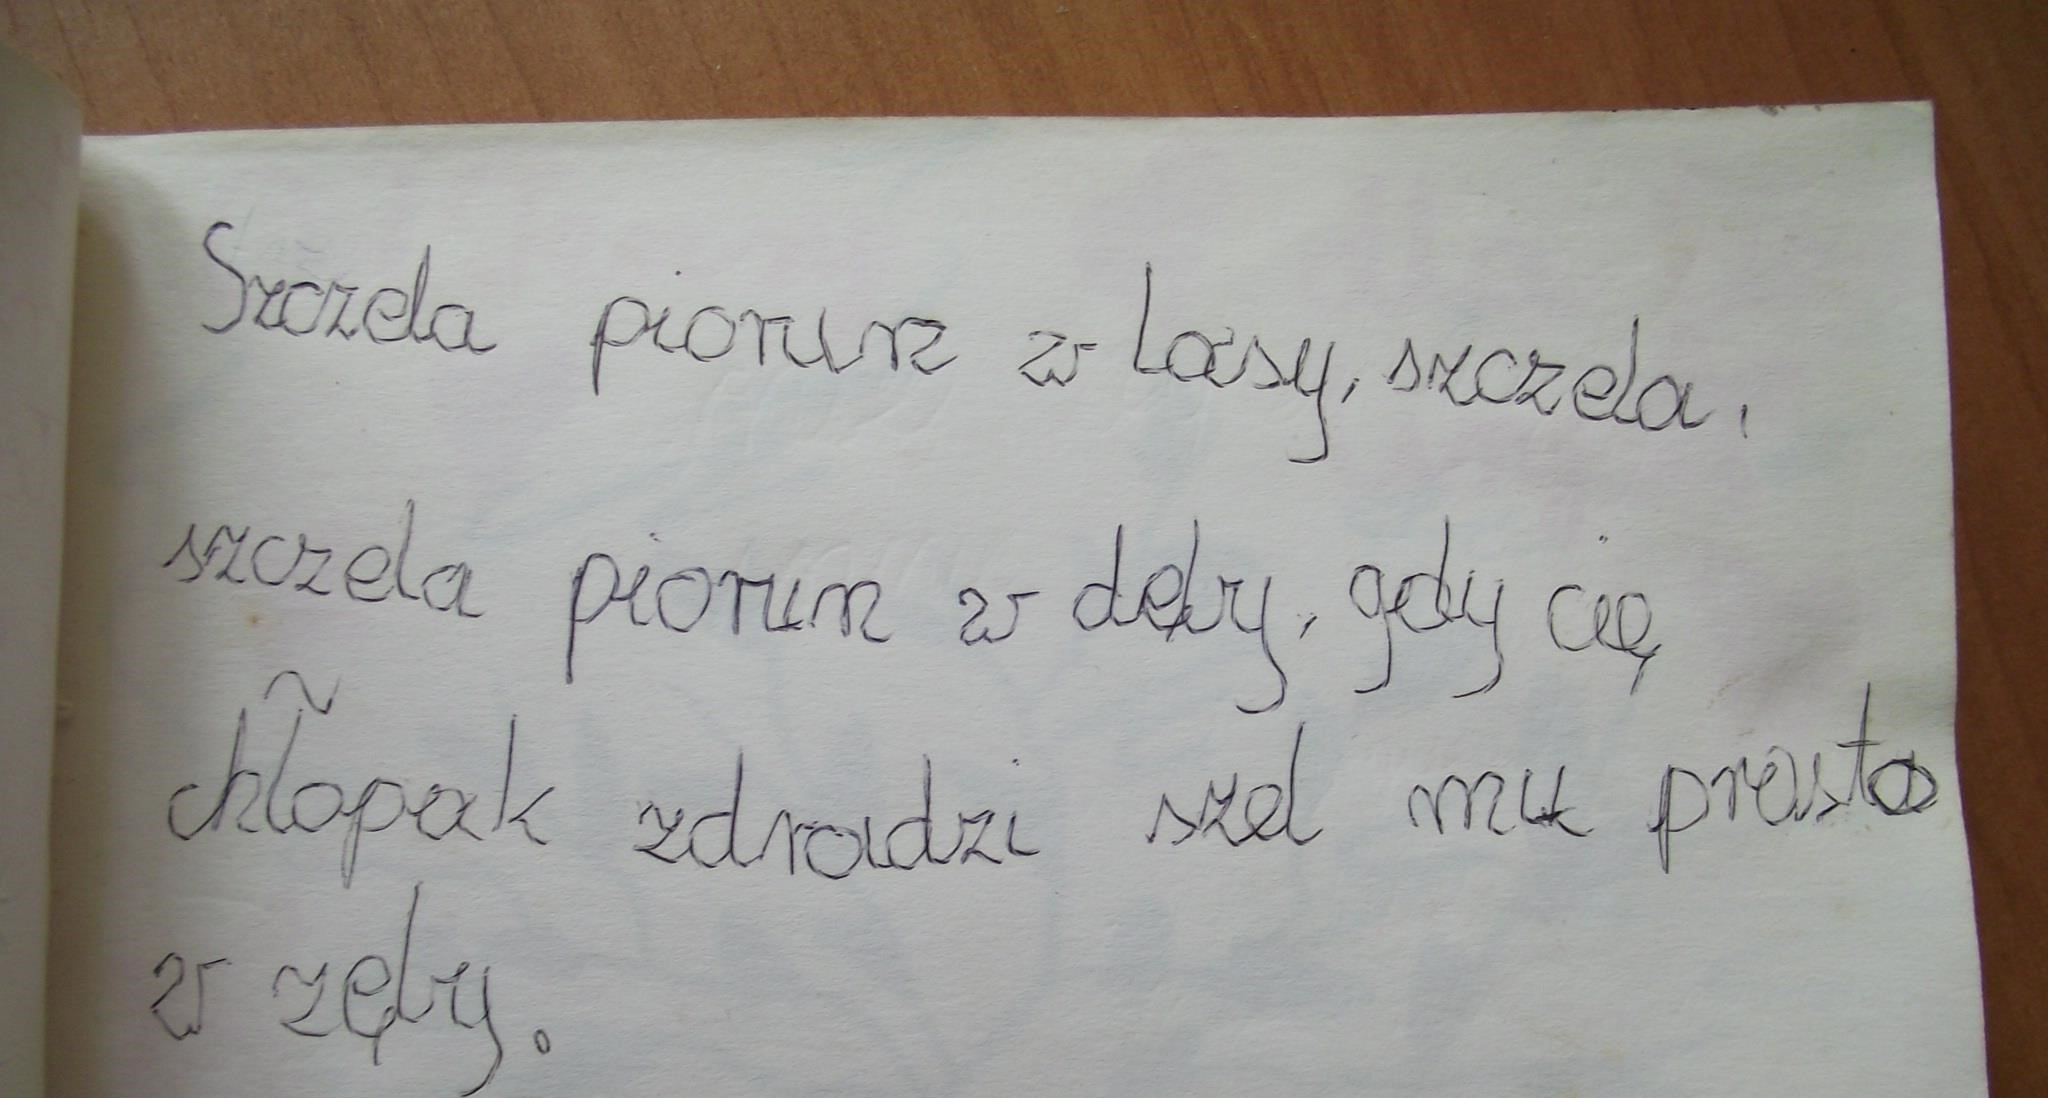 Szczela piorun w lasy, szczela,
szczela piorun w dęby, gdy cię
chłopak zdradzi szel mu prosto
w zęby.